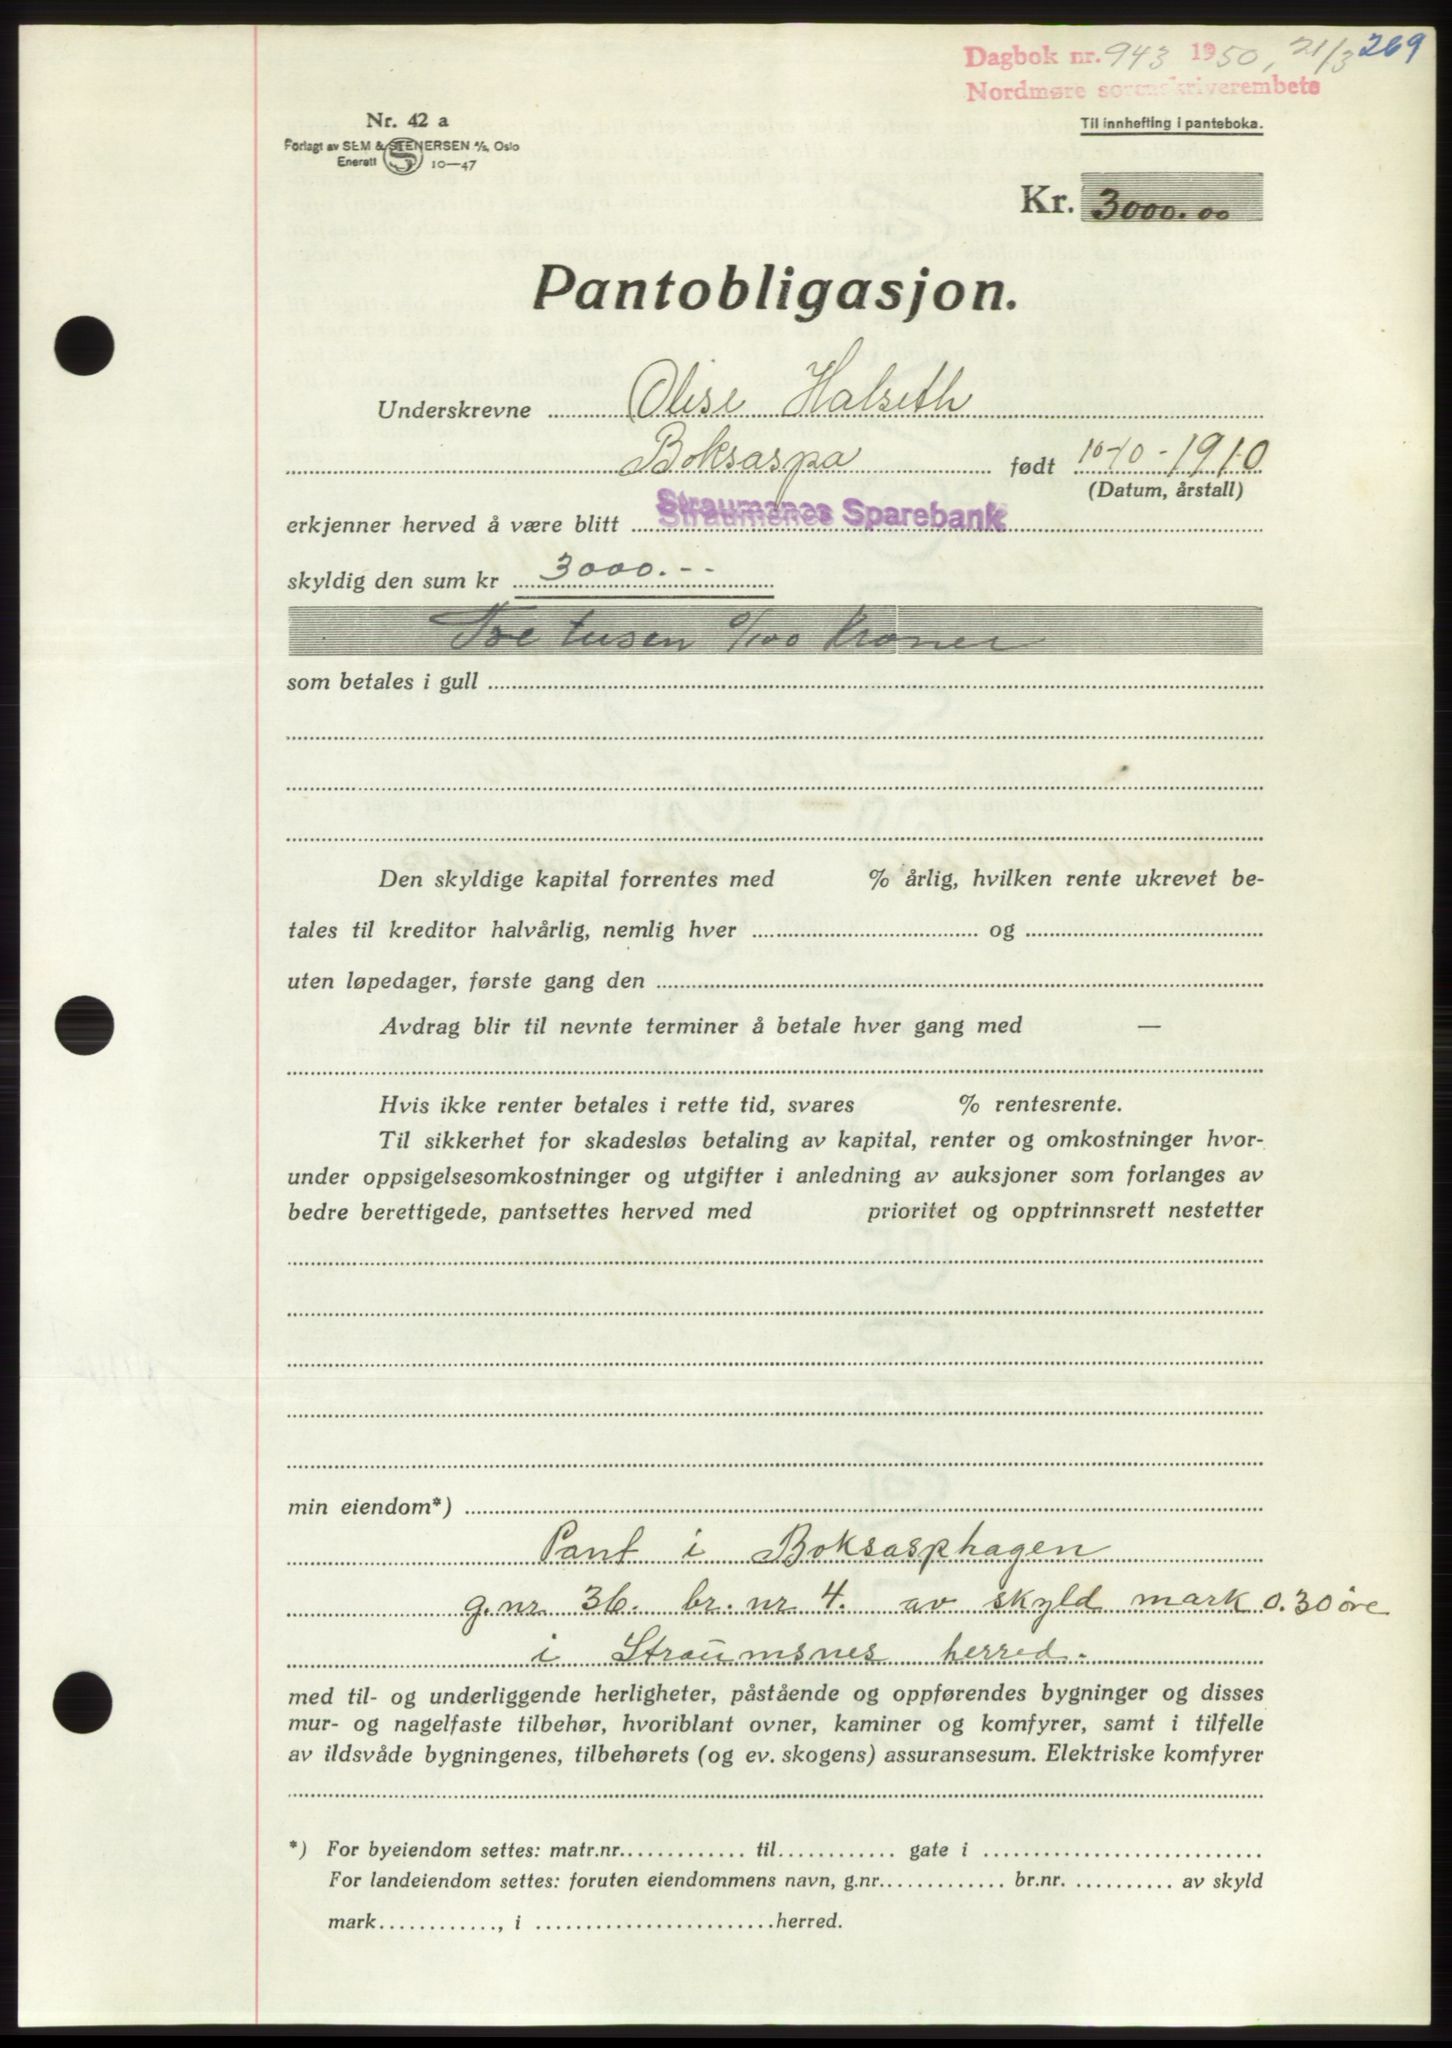 Dagbok nr. 943 1950, 21/3 269
Nordmøre sorenskriverembete
Nr. 42 a
Til innhefting i panteboka.
Forlagt av SEM & STENERSEN A/S, Oslo
Enerett S 10—47
Kr. 3000.00
Pantobligasjon.
Underskrevne Olise Halseth
Boksaspa født 10-10-1910
(Datum, årstall)
erkjenner herved å være blitt Straumsnes Sparebank
skyldig den sum kr 3000.--
Tre tusen 0/100 kroner
som betales i gull
Den skyldige kapital forrentes med % årlig, hvilken rente ukrevet be-
tales til kreditor halvårlig, nemlig hver og
uten løpedager, første gang den
Avdrag blir til nevnte terminer å betale hver gang med —
Hvis ikke renter betales i rette tid, svares % rentesrente.
Til sikkerhet for skadesløs betaling av kapital, renter og omkostninger hvor-
under oppsigelsesomkostninger og utgifter i anledning av auksjoner som forlanges av
bedre berettigede, pantsettes herved med prioritet og opptrinnsrett nestetter
min eiendom*)
Pant i Boksasphagen
g.nr 36. br. nr 4. av skyld mark 0.30 øre
i Straumsnes herred.
med til- og underliggende herligheter, påstående og oppførendes bygninger og disses
mur- og nagelfaste tilbehør, hvoriblant ovner, kaminer og komfyrer, samt i tilfelle
av ildsvåde bygningenes, tilbehørets (og ev. skogens) assuransesum. Elektriske komfyrer
*) For byeiendom settes: matr.nr. til gate i
For landeiendom settes: foruten eiendommens navn, g.nr. br.nr. av skyld
mark, i herred.